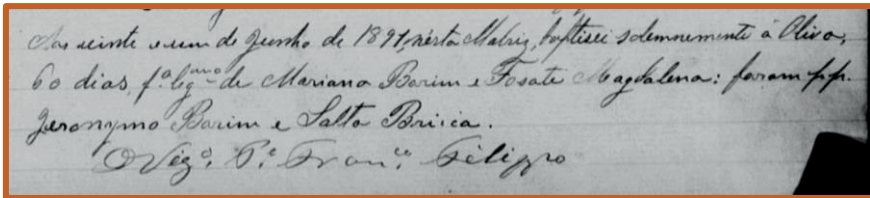 Aos vinte e um de Junho de 1891, nésta Matriz, baptisei solemnemente á Oliva,
60 dias, fª. legmª de Mariano Borim e Fosate Magdalena: foram pp.
Jeronymo Borim e Salta Briica.
O Vigº. Pe. Franco. Filippo